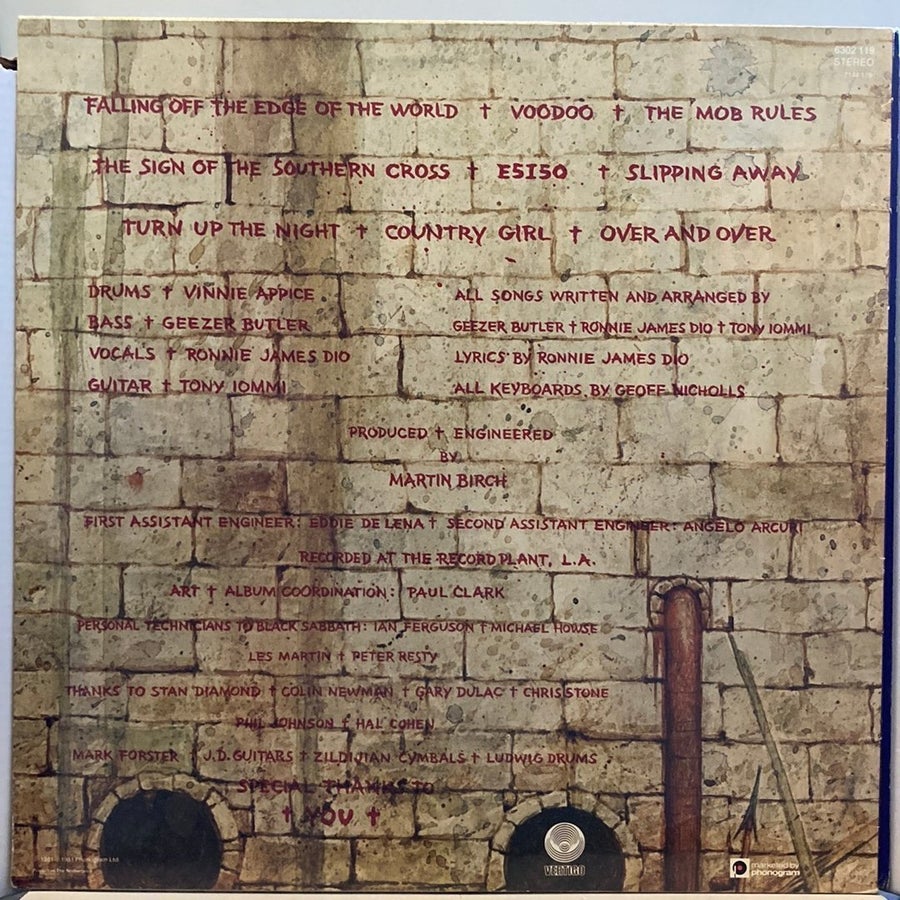 6302 119
STEREO
FALLING OFF THE EDGE OF THE WORLD † VOODOO † THE MOB RULES
THE SIGN OF THE SOUTHERN CROSS † E5150 † SLIPPING AWAY
TURN UP THE NIGHT † COUNTRY GIRL † OVER AND OVER
DRUMS † VINNIE APPICE
BASS † GEEZER BUTLER
VOCALS † RONNIE JAMES DIO
GUITAR † TONY IOMMI
ALL SONGS WRITTEN AND ARRANGED BY
GEEZER BUTLER † RONNIE JAMES DIO † TONY IOMMI
LYRICS BY RONNIE JAMES DIO
ALL KEYBOARDS BY GEOFF NICHOLLS
PRODUCED † ENGINEERED
BY
MARTIN BIRCH
FIRST ASSISTANT ENGINEER: EDDIE DE LENA † SECOND ASSISTANT ENGINEER: ANGELO ARCURI
RECORDED AT THE RECORD PLANT, L.A.
ART † ALBUM COORDINATION: PAUL CLARK
PERSONAL TECHNICIANS TO BLACK SABBATH: IAN FERGUSON † MICHAEL HOWSE
LES MARTIN † PETER RESTY
THANKS TO STAN DIAMOND † COLIN NEWMAN † GARY DULAC † CHRIS STONE
PHIL JOHNSON † HAL COHEN
MARK FORSTER † J.D. GUITARS † ZILDJIAN CYMBALS † LUDWIG DRUMS
SPECIAL THANKS TO
† YOU †
Phonogram Ltd.
VERTIGO
marketed by
phonogram